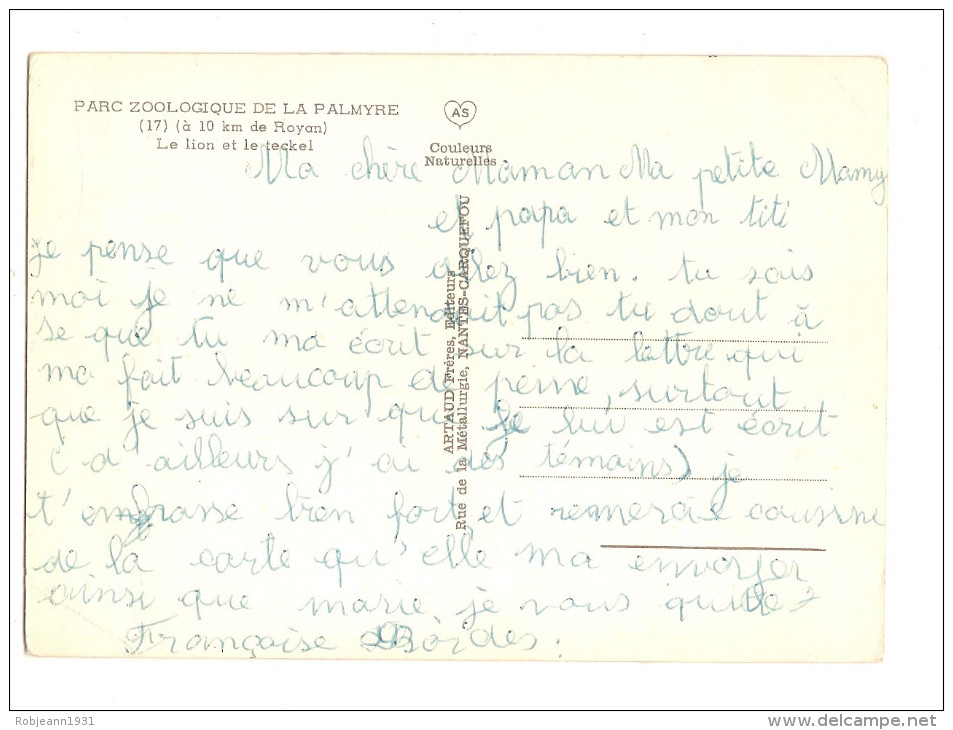 PARC ZOOLOGIQUE DE LA PALMYRE
(17) (à 10 km de Royan)
Le lion et le teckel
AS
Couleurs
Naturelles
ARTAUD Frères, Editeurs
Rue de la Métallurgie, NANTES-CARQUEFOU
Ma chère Maman Ma petite Mamy
et papa et mon titi
je pense que vous allez bien. tu sais
moi je ne m'attendait pas tu dout à
se que tu ma écrit sur la lettre qui
ma fait beaucoup de peine, surtout
que je suis sur que je lui est écrit
(d'ailleurs j'ai des témoins) je
t'embrasse bien fort, et remercie cousine
de la carte qu'elle ma envoyer
ainsi que marie. je vous quitte
Françoise
Robjeann1931
www.delcampe.net